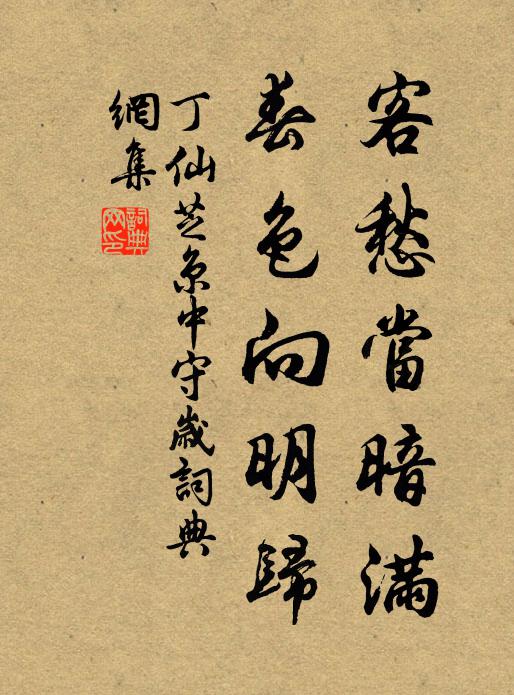 客愁當暗滿
春色向明歸
丁仙芝京中守歲詞典
網集
詞典網印